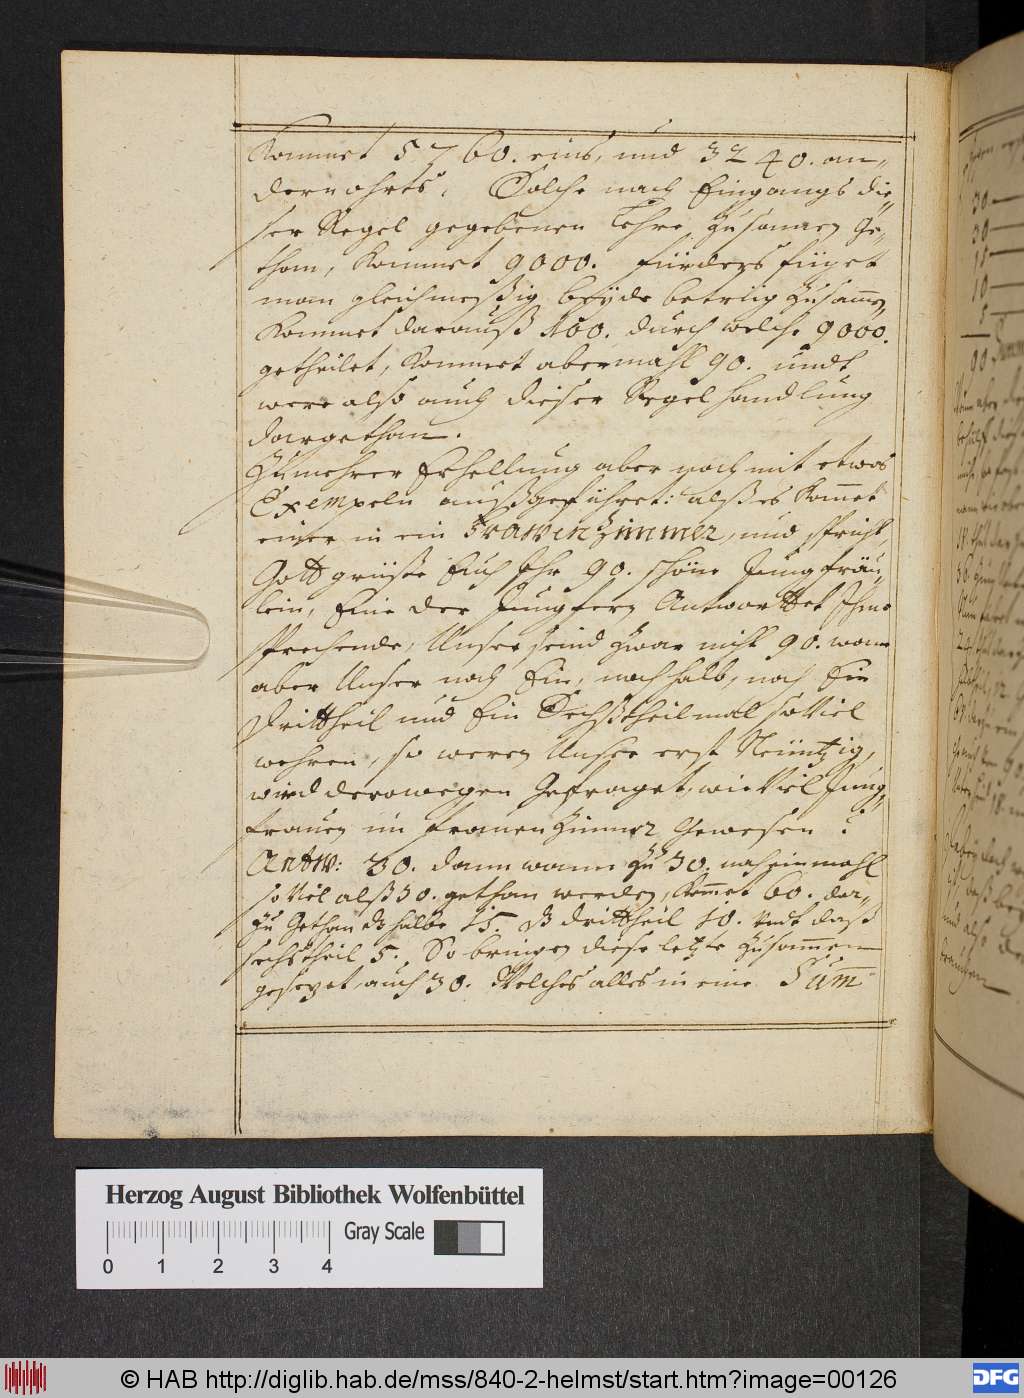 Kommet 5760. eins, und 3240. an„
derwohrts. Solche nach Eingangs die„
ser Regel gegebenen Lehre, zusamen ge„
than, kommet 9000. fürders füget
man gleichmeßig beyde betrüg zusamm̄en
kommet darauß 100. durch welche 9000.
getheilet, kommet abermahl 90. undt
were also auch dieser Regel handlung
dargethan.
Zu mehrer Erhellung aber noch mit etwas
Exempeln außgeführet: alß es kom̄et
einer in ein Frawenzimmer, und spricht,
Gott grüße Euch Ihr 90. schöne Jungfräu„
lein, Eine der Jungfern Antworttet Ihme
sprechende, Unser seind zwar nicht 90. wann
aber Unser noch Ein, noch halb, noch Ein
Drittheil und Ein Sechßtheil mal so Viel
wehren, so weren Unser erst Neüntzig,
wird derowegen Gefraget, wie Viel Jung„
frauen im frauen Zimmer Gewesen?
Antw: 30. dann wann zu 30. noch einmahl
so Viel alß 30. gethan werden, kom̄et 60. dar„
zu Gethan dz halbe 15. dz drittheil 10. undt daß
sechstheil 5. So bringen diese letzte zusam̄en
gesezet, auch 30. Welches alles in eine Sum̄
30
30
15
10
5
90
Herzog August Bibliothek Wolfenbüttel
Gray Scale
0 1 2 3 4
© HAB http://diglib.hab.de/mss/840-2-helmst/start.htm?image=00126
DFG